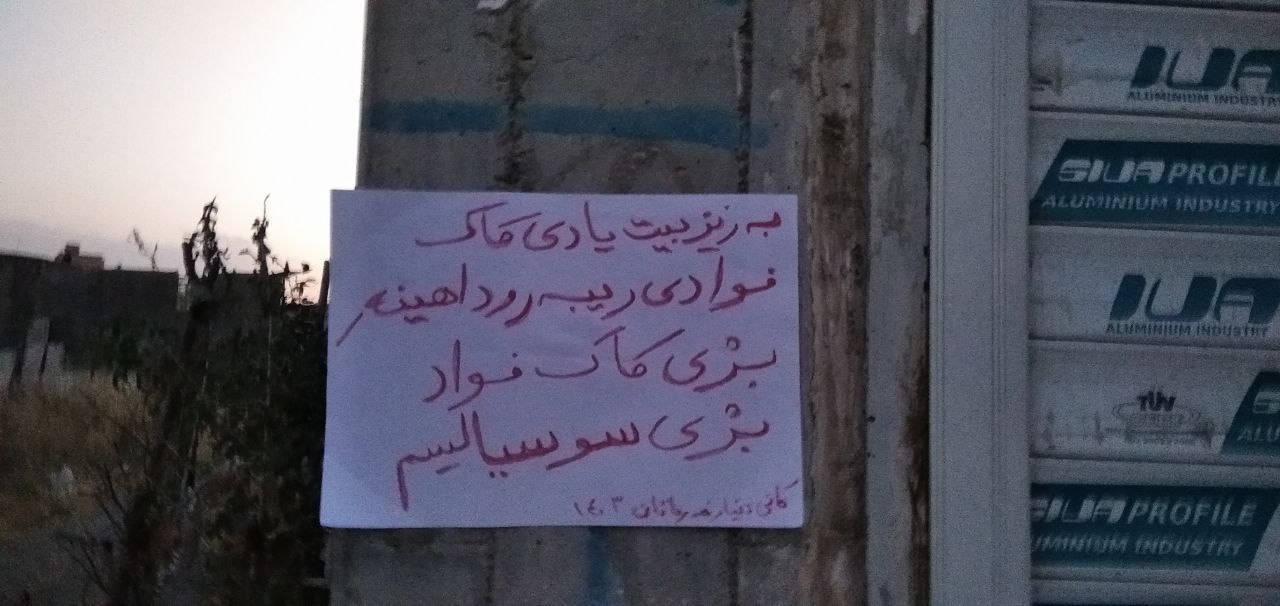 به ریز بیت یادی کاک
فوادی ریبه رو داهینه ر
بژی کاک فواد
بژی سوسیالیسم
کانی دینار مریوان ١٤٠٣
IUA
ALUMINIUM INDUSTRY
SIUA PROFILE
ALUMINIUM INDUSTRY
IUA
ALUMINIUM INDUSTRY
TÜV
SIUA PROFILE
UMINIUM INDUSTRY